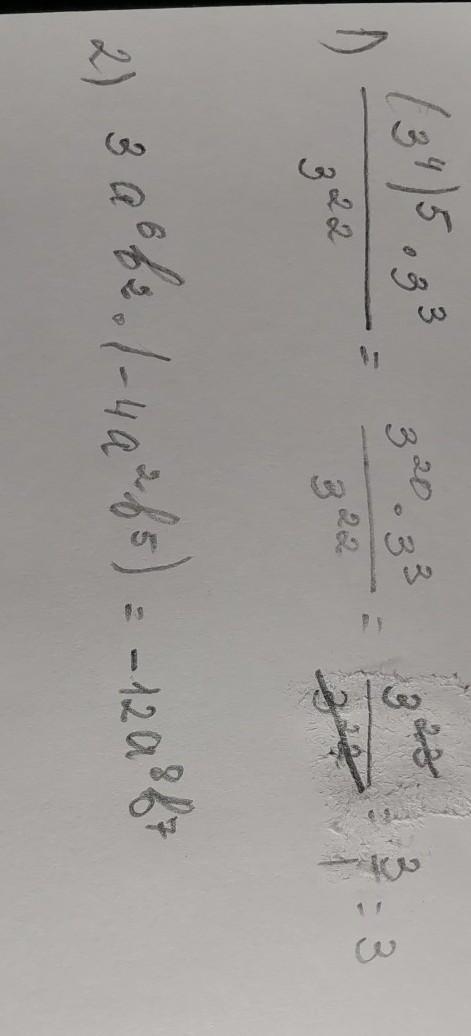 1) (3⁴)⁵ · 3³ / 3²² = 3²⁰ · 3³ / 3²² = 3²³ / 3²² = 3 / 1 = 3
2) 3a⁶b² · (-4a²b⁵) = -12a⁸b⁷